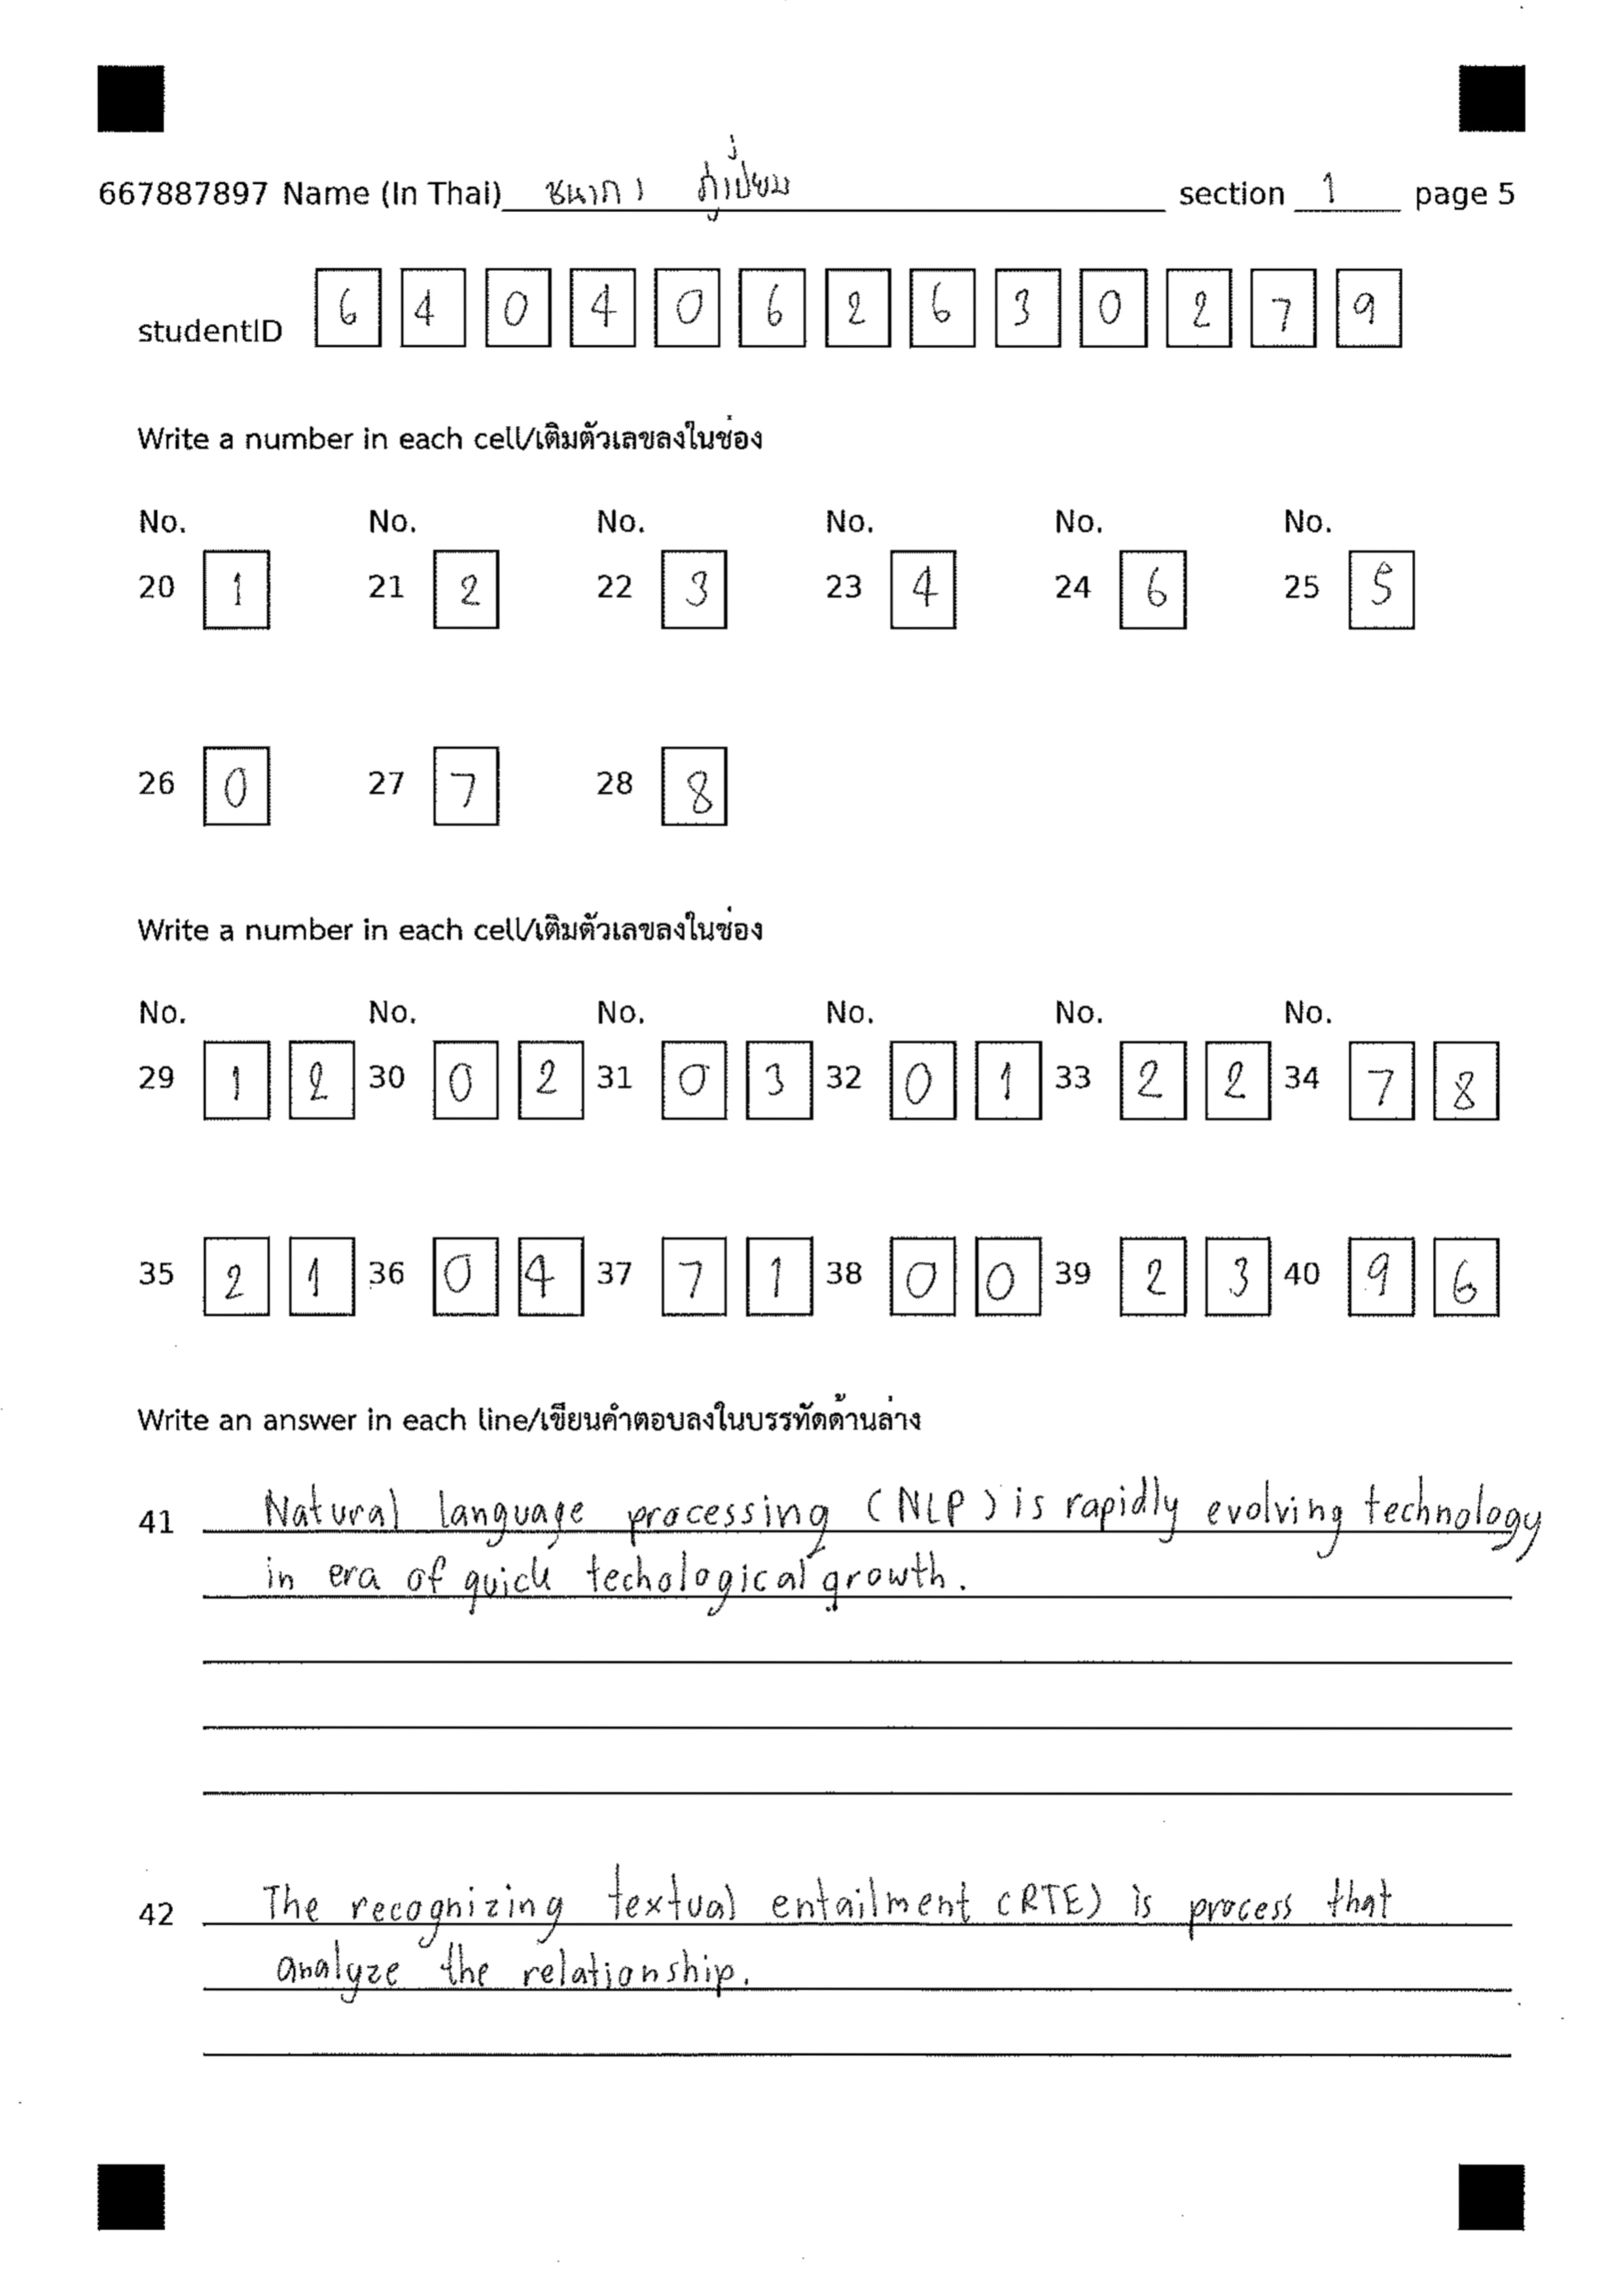 667887897 Name (In Thai) ชนากา ภู่เปี่ยม section 1 page 5
studentID 6 4 0 4 0 6 2 6 3 0 2 7 9
Write a number in each cell/เติมตัวเลขลงในช่อง
No. No. No. No. No. No.
20 1 21 2 22 3 23 4 24 6 25 5
26 0 27 7 28 8
Write a number in each cell/เติมตัวเลขลงในช่อง
No. No. No. No. No. No.
29 1 2 30 0 2 31 0 3 32 0 1 33 2 2 34 7 8
35 2 1 36 0 4 37 7 1 38 0 0 39 2 3 40 9 6
Write an answer in each line/เขียนคำตอบลงในบรรทัดด้านล่าง
41 Natural language processing (NLP) is rapidly evolving technology
in era of quick techological growth.
42 The recognizing textual entailment (RTE) is process that
analyze the relationship.